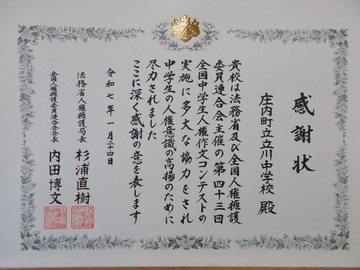 感謝状
庄内町立立川中学校 殿
貴校は法務省及び全国人権擁護
委員連合会主催の第四十三回
全国中学生人権作文コンテストの
実施に多大な協力をされ
中学生の人権意識の高揚のために
尽力されました
ここに深く感謝の意を表します
令和七年一月二十四日
法務省人権擁護局長
杉浦直樹
全国人権擁護委員連合会会長
内田博文